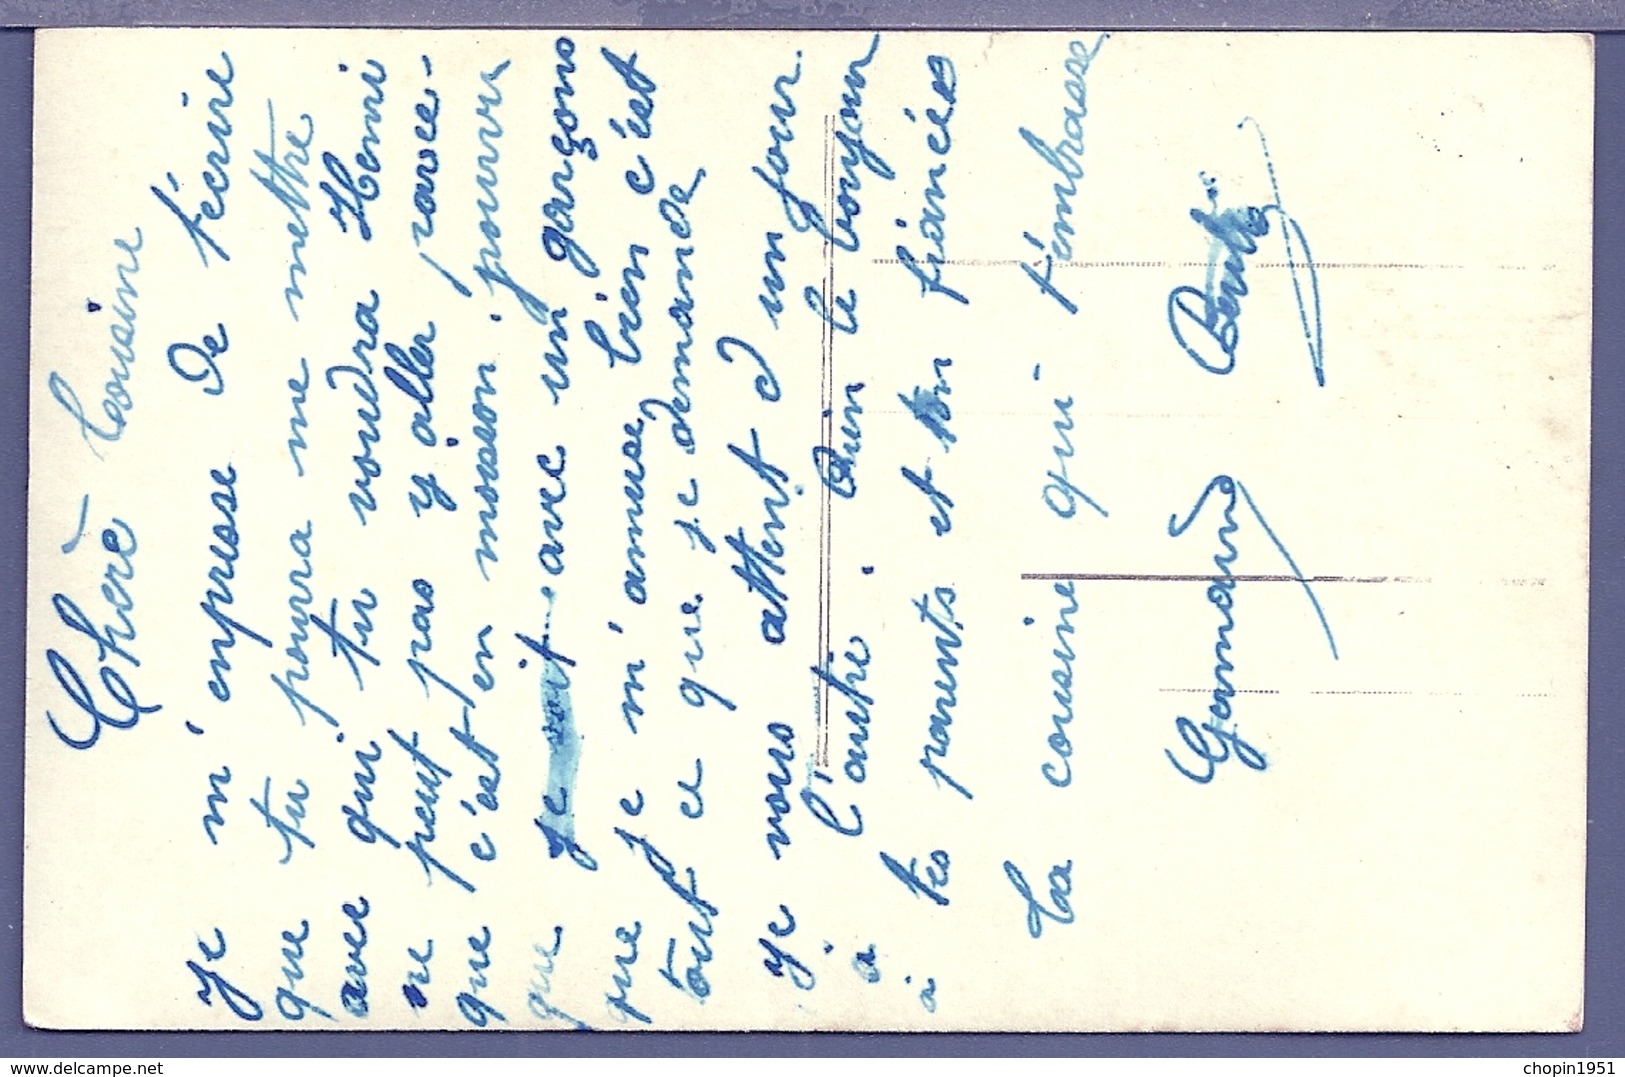 Chère Cousine
Je m'enpresse de t'écrire
que tu pourra me mettre
avec qui tu voudra Henri
ne peut pas y aller parce-
que c'est en moisson. pourvu
que je soit avec un garçons
que je m'amuse bien c'est
tout ce que je demande
je vous attent d un jour
à l'autre. Bien le bonjour
à tes parents et ton fiancées
Ta cousine qui t'embrasse
Germaine
delcampe.net
chopin1951